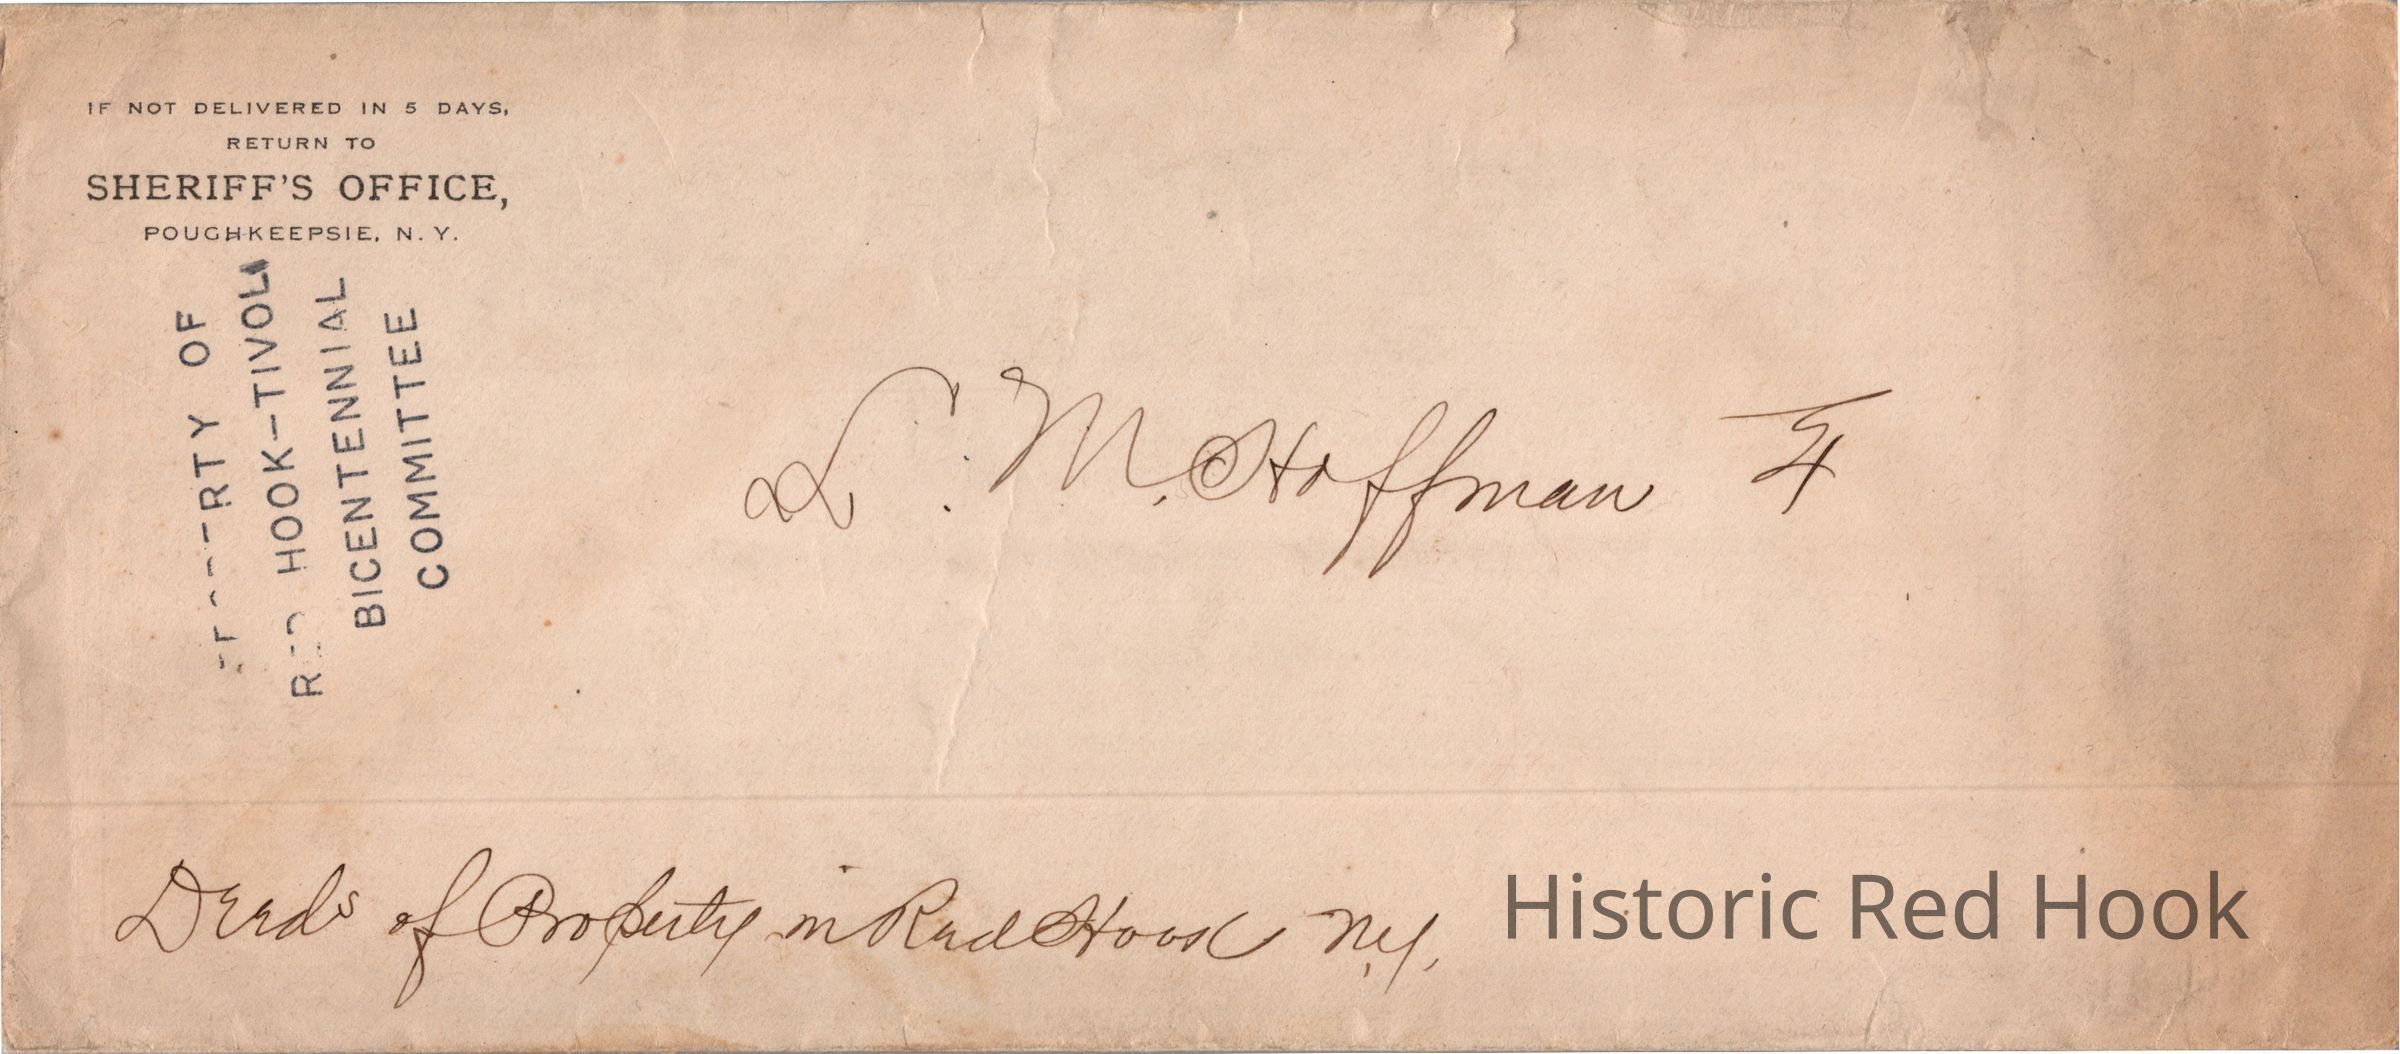 IF NOT DELIVERED IN 5 DAYS,
RETURN TO
SHERIFF'S OFFICE,
POUGHKEEPSIE, N. Y.
OF
HOOK-TIVOLI
BICENTENNIAL
COMMITTEE
L. M. Hoffman
Deeds of Property in Red Hook N.Y.
Historic Red Hook